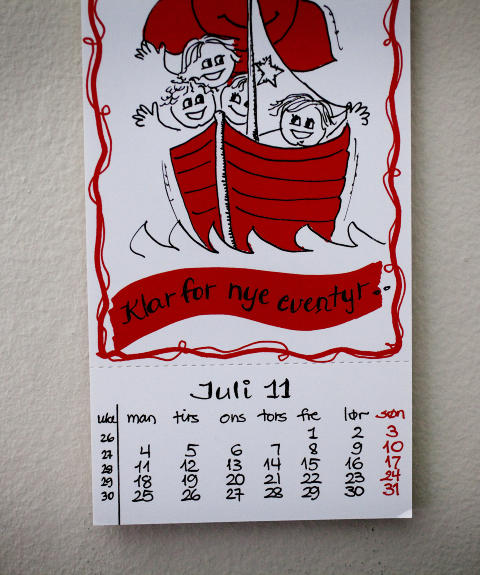 Klar for nye eventyr
Juli 11
uke man tirs ons tors fre lør søn
26 1 2 3
27 4 5 6 7 8 9 10
28 11 12 13 14 15 16 17
29 18 19 20 21 22 23 24
30 25 26 27 28 29 30 31